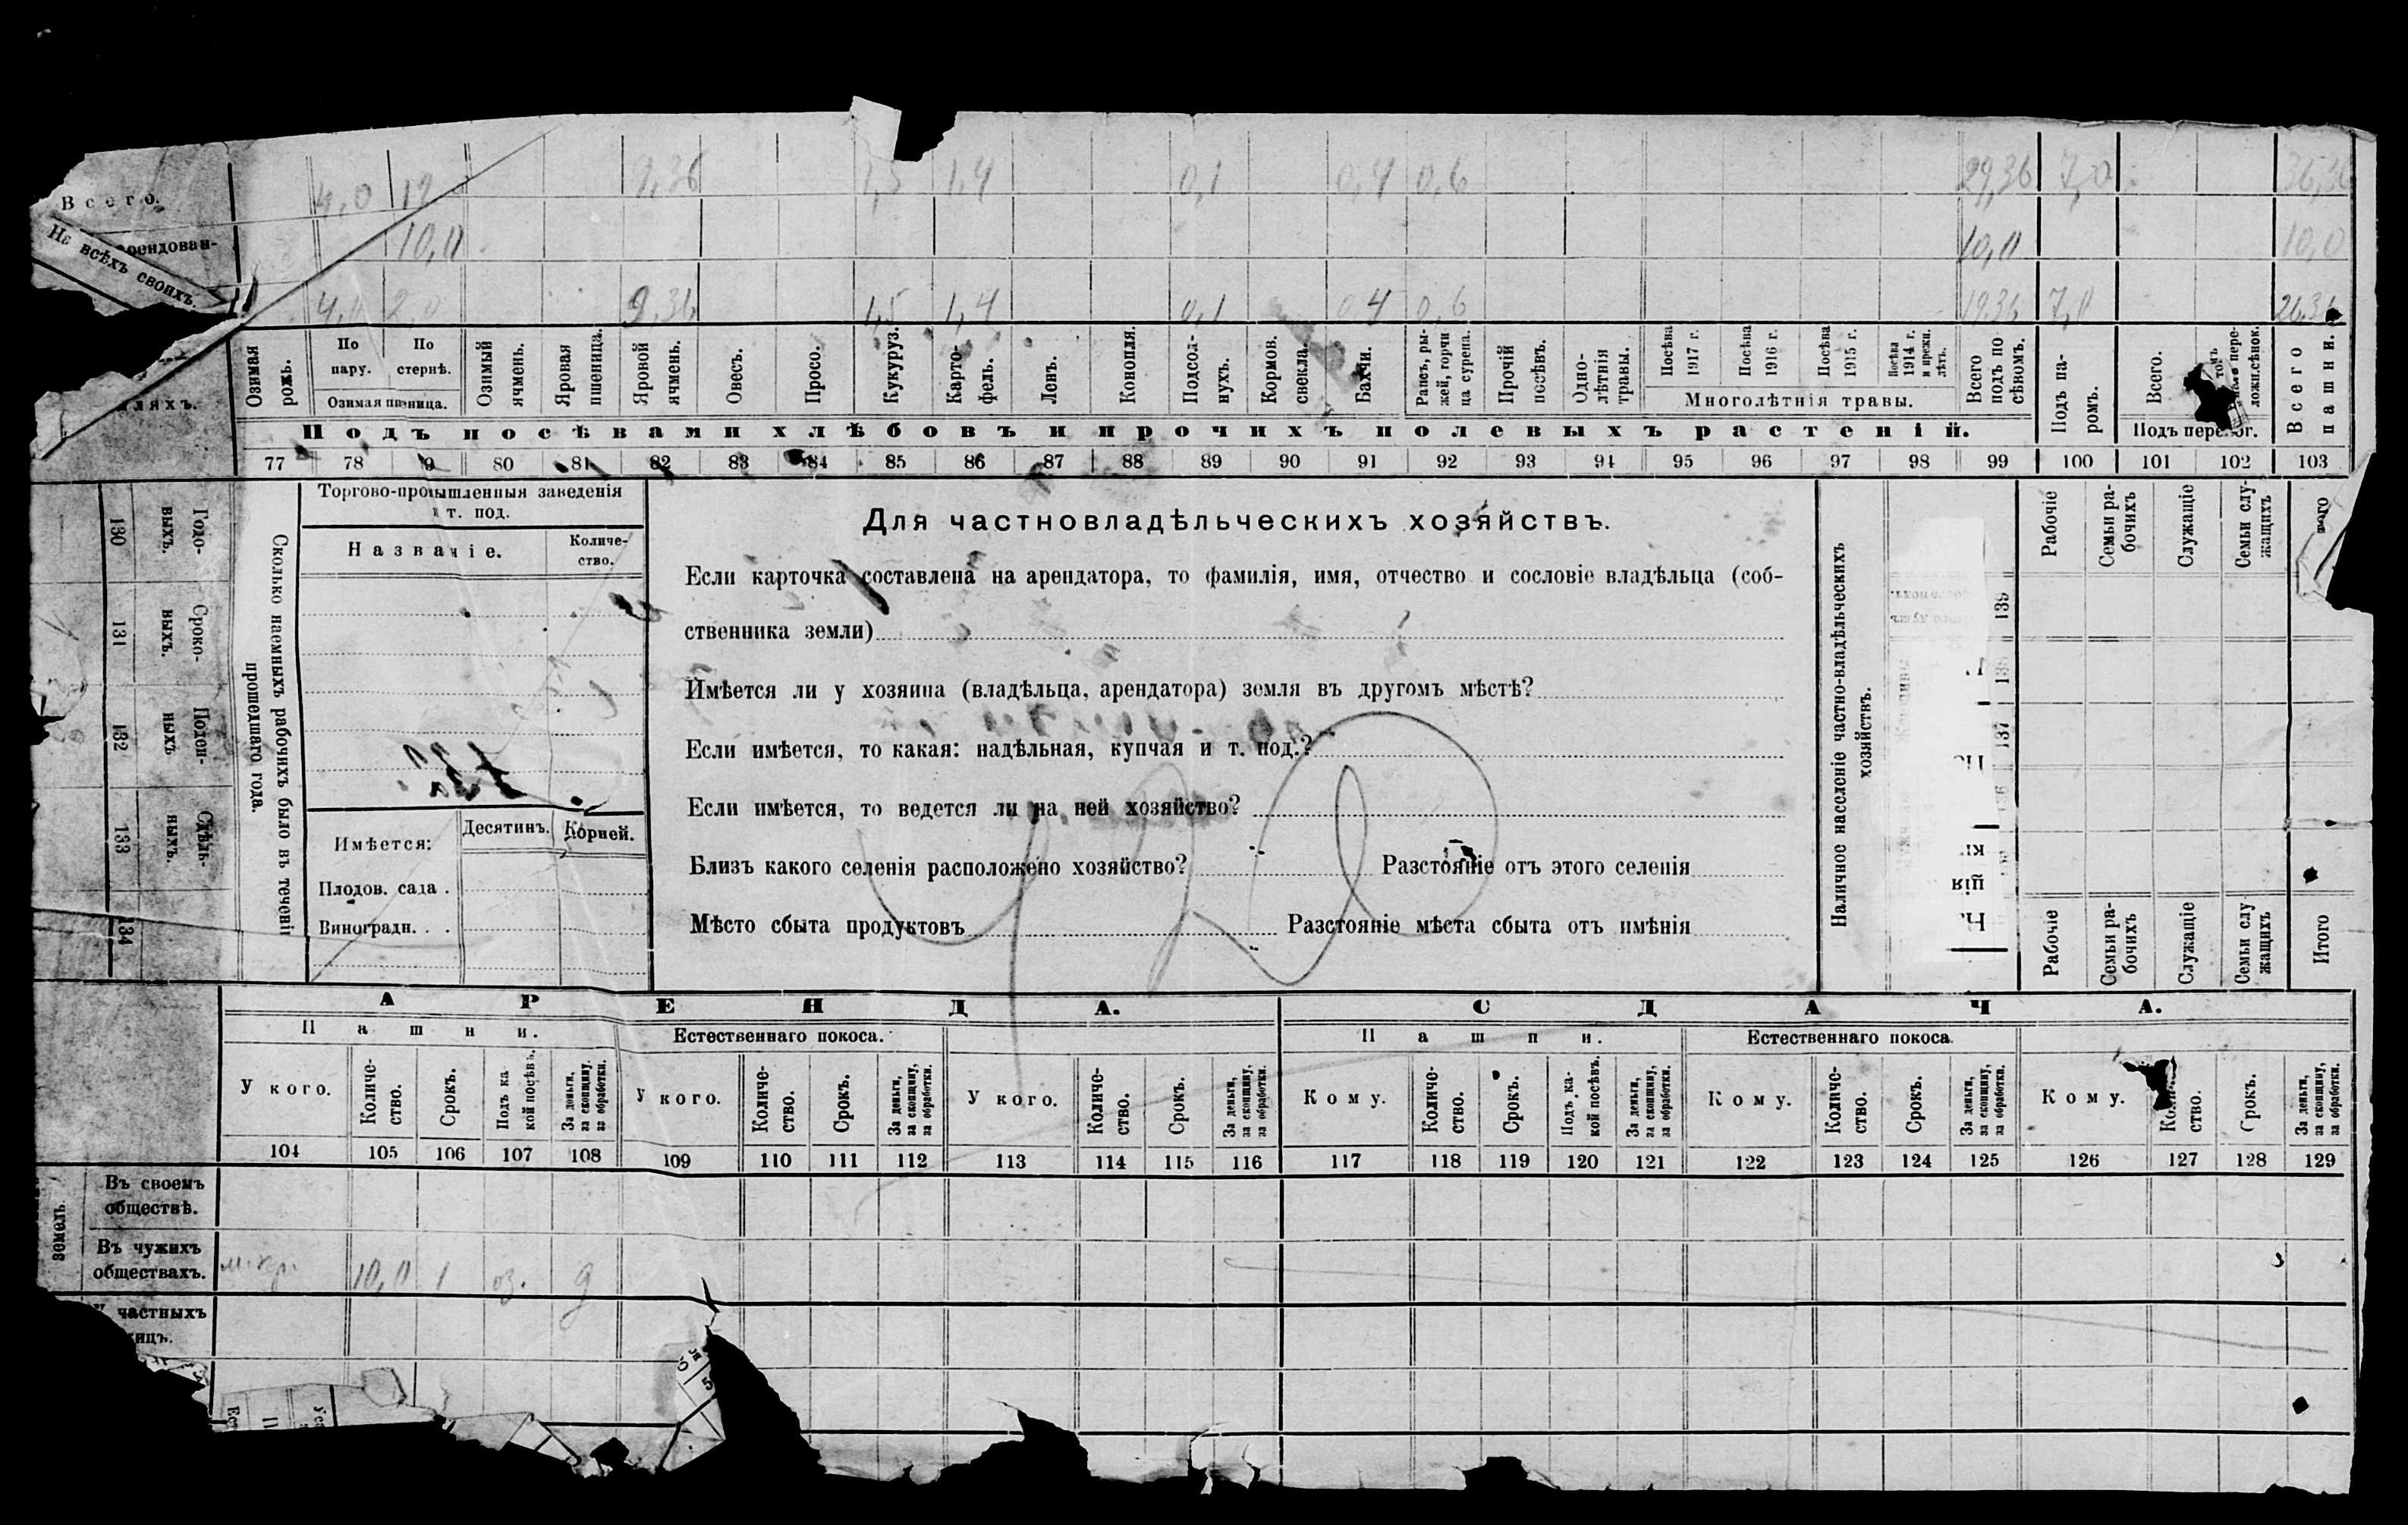 Всего. 4,0 12 9,36 1,5 1,4 0,1 0,4 0,6 29,36 7,0 36,36
10,0 10,0 10,0
Не всѣхъ своихъ. 4,0 2,0 9,36 1,5 1,4 0,1 0,4 0,6 19,36 7,0 26,36
Озимая рожь. По пару. По стернѣ. Озимая пшеница. Озимый ячмень. Яровая пшеница. Яровой ячмень. Овесъ. Просо. Кукуруз. Картофель. Ленъ. Конопля. Подсолнухъ. Кормов. свекла. Бахчи. Рапсъ, рыжей, горчица сурепа. Прочій посѣвъ. Однолѣтнія травы. Посѣва 1917 г. Посѣва 1916 г. Посѣва 1915 г. Посѣва 1914 г. и прежн. лѣтъ. Многолѣтнія травы. Всего подъ посѣвомъ. Подъ паромъ. Всего. Подъ перелог. Всего пашни.
Подъ посѣвами хлѣбовъ и прочихъ полевыхъ растеній.
77 78 9 80 81 82 83 84 85 86 87 88 89 90 91 92 93 94 95 96 97 98 99 100 101 102 103
Годовыхъ. 130
Сроковыхъ. 131
Поденныхъ 132
Сдѣльныхъ. 133
134
Сколько наемныхъ рабочихъ было въ теченіи прошедшаго года.
Торгово-промышленныя заведенія
и т. под.
Названіе. Количество.
Имѣется: Десятинъ. Корней.
Плодов. сада .
Виноградн. . .
Для частновладѣльческихъ хозяйствъ.
Если карточка составлена на арендатора, то фамилія, имя, отчество и сословіе владѣльца (соб-
ственника земли)
Имѣется ли у хозяина (владѣльца, арендатора) земля въ другомъ мѣстѣ?
Если имѣется, то какая: надѣльная, купчая и т. под.?
Если имѣется, то ведется ли на ней хозяйство?
Близъ какого селенія расположено хозяйство? Разстояніе отъ этого селенія
Мѣсто сбыта продуктовъ Разстояніе мѣста сбыта отъ имѣнія
Наличное населеніе частно-владѣльческихъ хозяйствъ.
139
137
Рабочіе Семьи рабочихъ Служащіе Семьи служащихъ
Рабочіе Семьи рабочихъ Служащіе Семьи служащихъ Итого
АРЕНДА. СДАЧА.
Пашни. Естественнаго покоса. Пашни. Естественнаго покоса.
У кого. Количество. Срокъ. Подъ какой посѣвъ. За деньги, за скопщину, за обработки. У кого. Количество. Срокъ. За деньги, за скопщину, за обработки. У кого. Количество. Срокъ. За деньги, за скопщину, за обработки. Кому. Количество. Срокъ. Подъ какой посѣвъ. За деньги, за скопщину, за обработки. Кому. Количество. Срокъ. За деньги, за скопщину, за обработки. Кому. Срокъ. За деньги, за скопщину, за обработки.
104 105 106 107 108 109 110 111 112 113 114 115 116 117 118 119 120 121 122 123 124 125 126 127 128 129
земель.
Въ своемъ
обществѣ.
Въ чужихъ
обществахъ. 10,0 1 оз. д
частныхъ